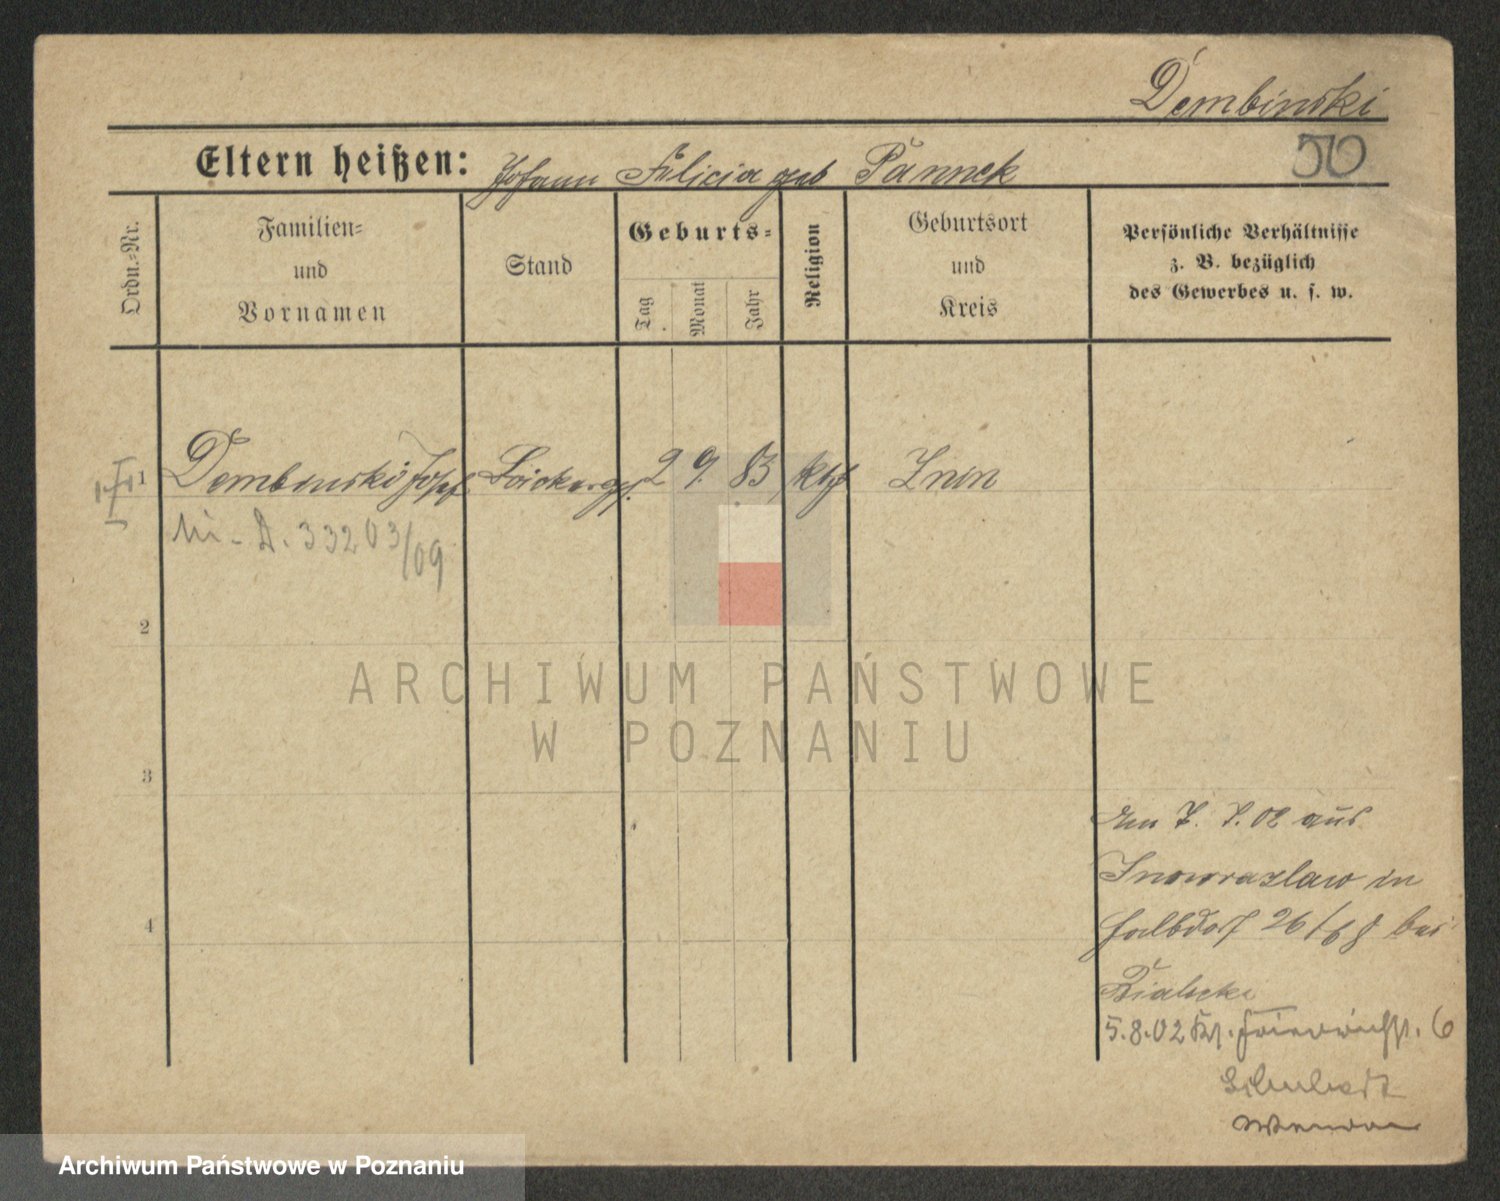 Dembinski
50
Eltern heißen: Johann Felicia geb Pannek
Ordn.-Nr.
Familien-
und
Vornamen
Stand
Geburts-
Tag
Monat
Jahr
Religion
Geburtsort
und
Kreis
Persönliche Verhältnisse
z. B. bezüglich
des Gewerbes u. s. w.
1 Dembinski Josef Bäckerges. 2 9. 83 kth Znin
A. 33203/09
2
3
4
ARCHIWUM PAŃSTWOWE
W POZNANIU
Am 7. 7. 02 aus
Inowrazlaw in
26/68 bei
5.8.02 Kl. Friedrichstr. 6
Schubert
Archiwum Państwowe w Poznaniu